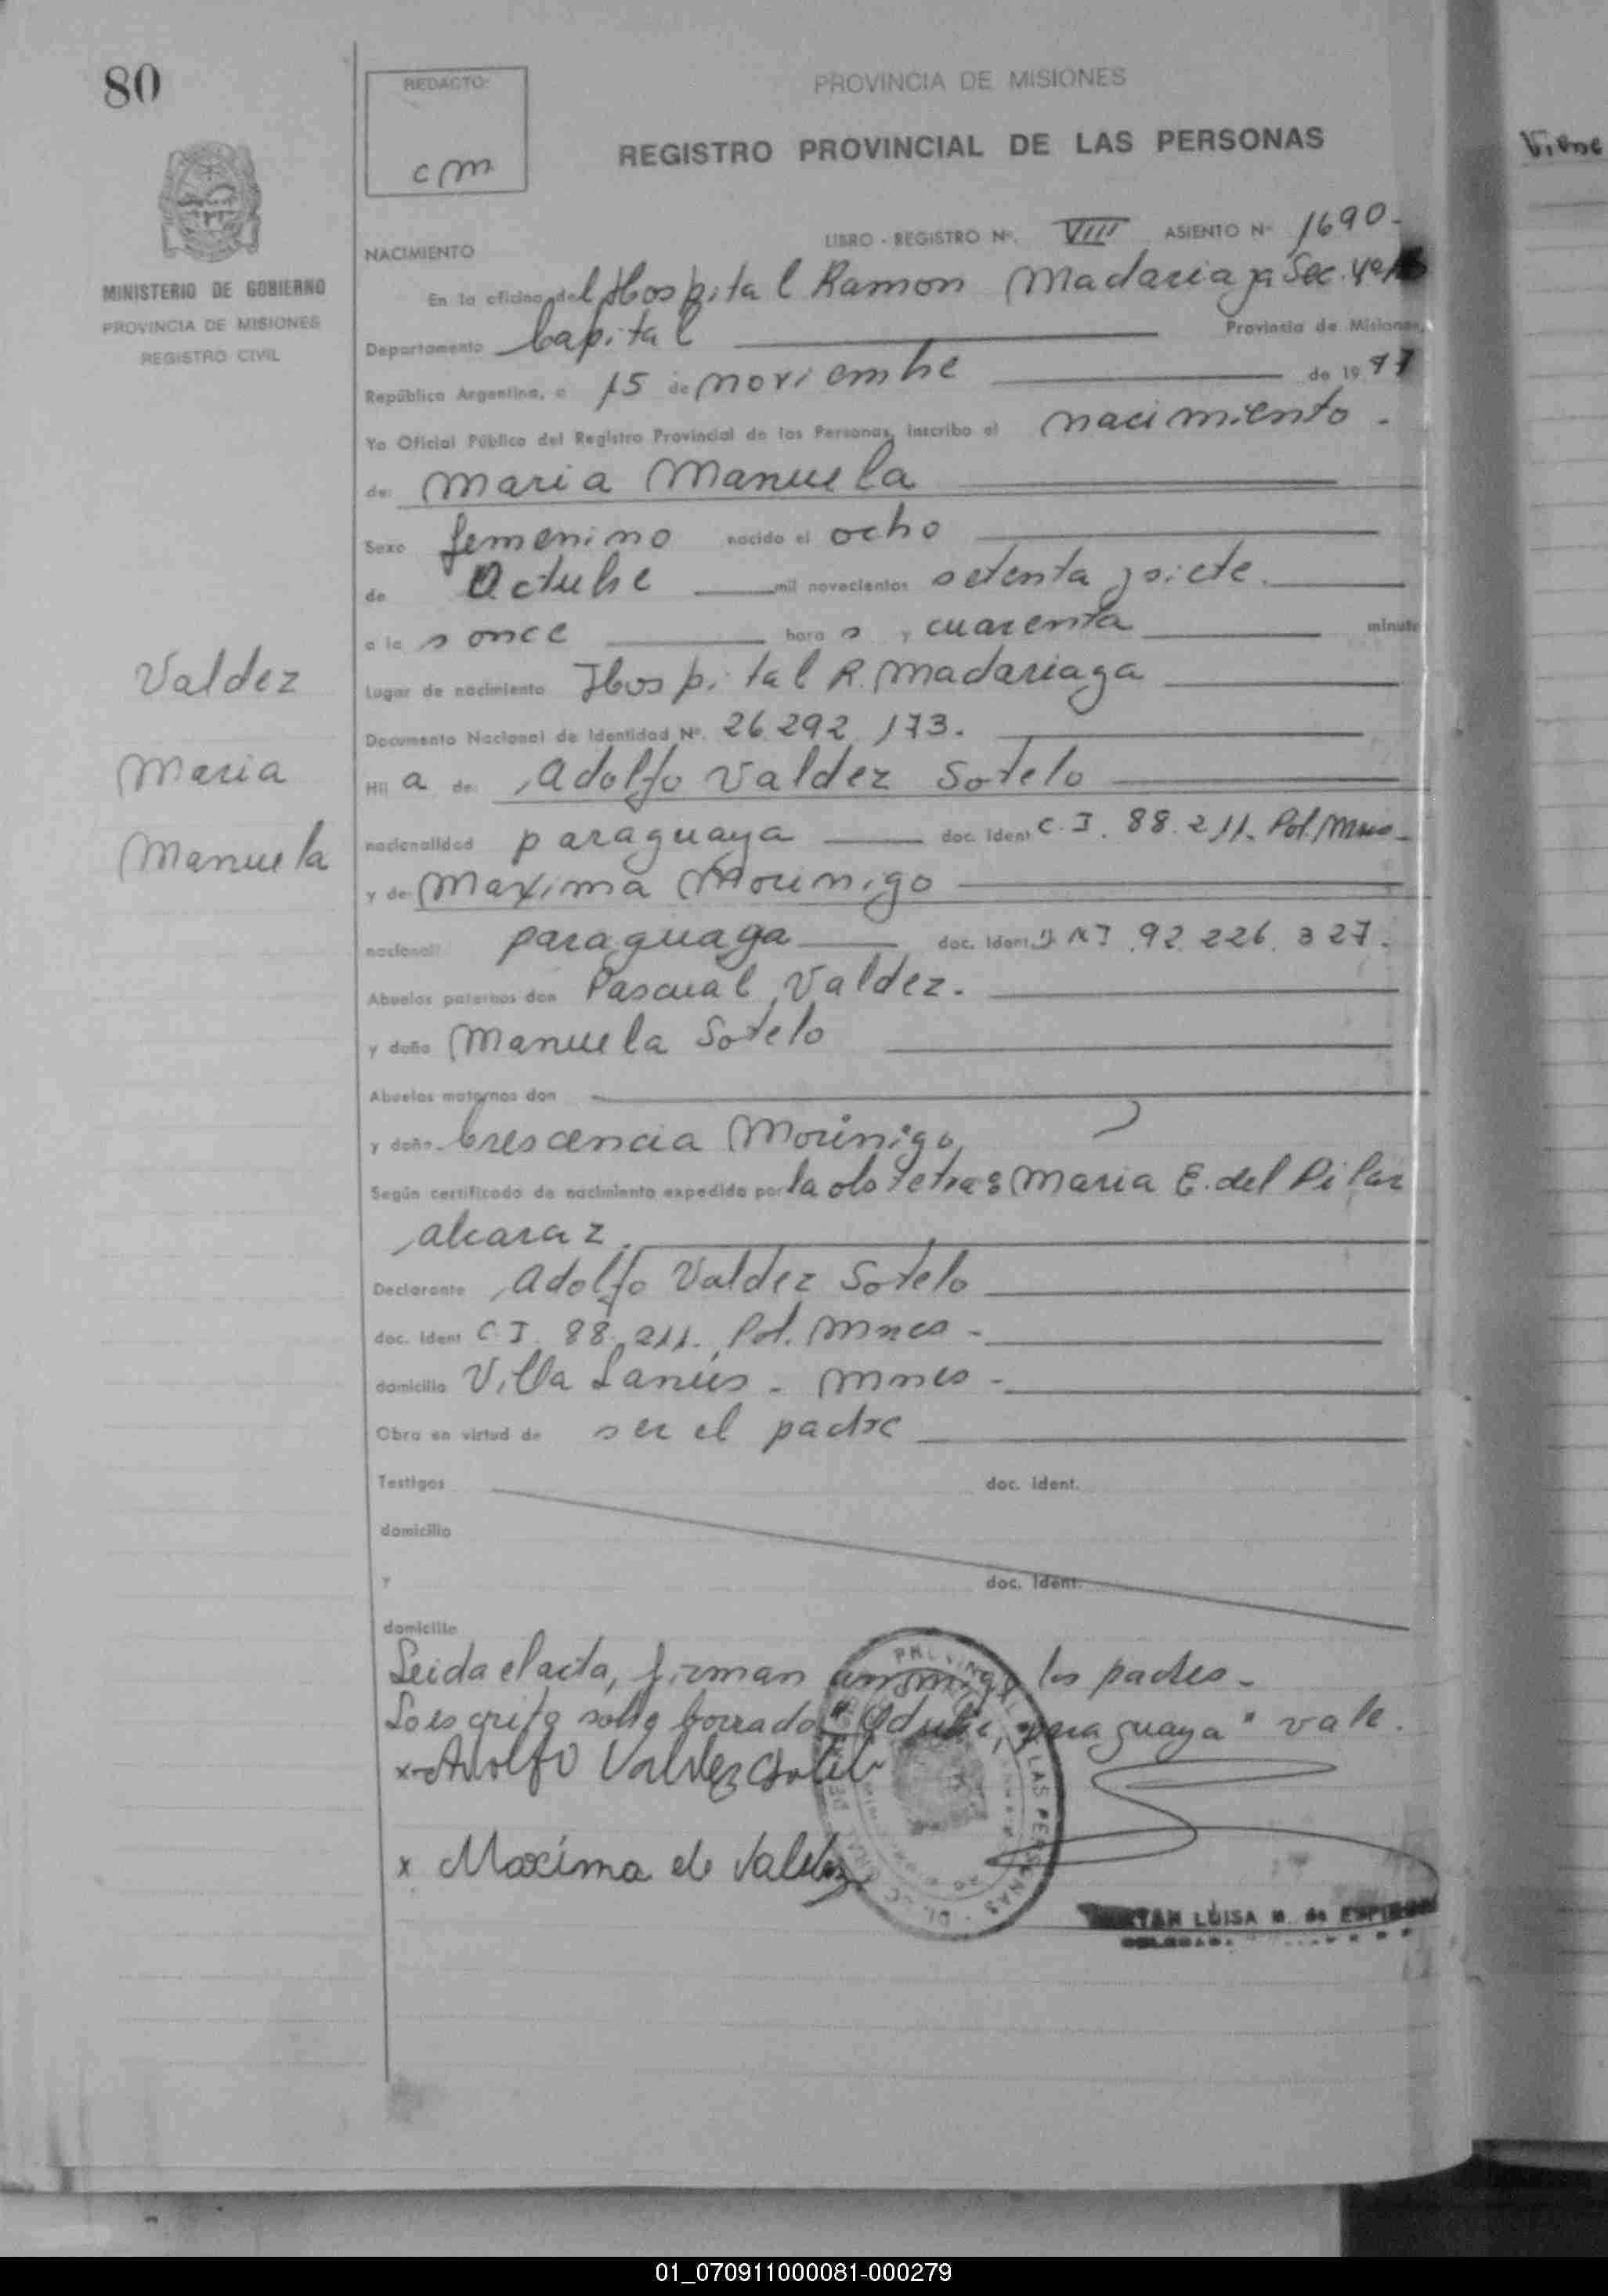 80
REDACTO:
cm
PROVINCIA DE MISIONES
REGISTRO PROVINCIAL DE LAS PERSONAS
Viene
MINISTERIO DE GOBIERNO
PROVINCIA DE MISIONES
REGISTRO CIVIL
NACIMIENTO LIBRO - REGISTRO Nº. VIII ASIENTO Nº 1690-
En la oficina del Hospital Ramon Madariaga Sec. 4ª
Departamento Capital Provincia de Misiones,
República Argentina, a 15 de noviembre de 1977
Yo Oficial Público del Registro Provincial de las Personas, inscribo el nacimiento -
de: Maria Manuela
Sexo femenino nacido el ocho
de Octubre mil novecientos setenta y siete.
a las once horas y cuarenta minuto
Valdez
Maria
Manuela
Lugar de nacimiento Hospital R. Madariaga
Documento Nacional de Identidad Nº. 26.292.173.
Hija de: Adolfo Valdez Sotelo
nacionalidad paraguaya doc. ident C.I. 88.211. Pol. Mnes-
y de Maxima Mourinigo
nacional: paraguaya doc. ident. DNI. 92.226.327.
Abuelos paternos don Pascual Valdez.
y doña Manuela Sotelo
Abuelos maternos don
y doña Crescencia Morinigo
Según certificado de nacimiento expedido por la obstetras Maria E. del Pilar
Alcaraz.
Declarante Adolfo Valdez Sotelo
doc. ident C.I. 88.211. Pol. Mnes -
domicilio Villa Lanús - Mnes -
Obra en virtud de ser el padre
Testigos doc. ident.
domicilio
y doc. ident.
domicilio
Leida el acta, firman conmigo los padres-
Lo escrito sobre borrado "Octubre, paraguaya" vale.
x Adolfo Valdez Sotelo
x Maxima de Valdez
LUISA M. de
01_070911000081-000279